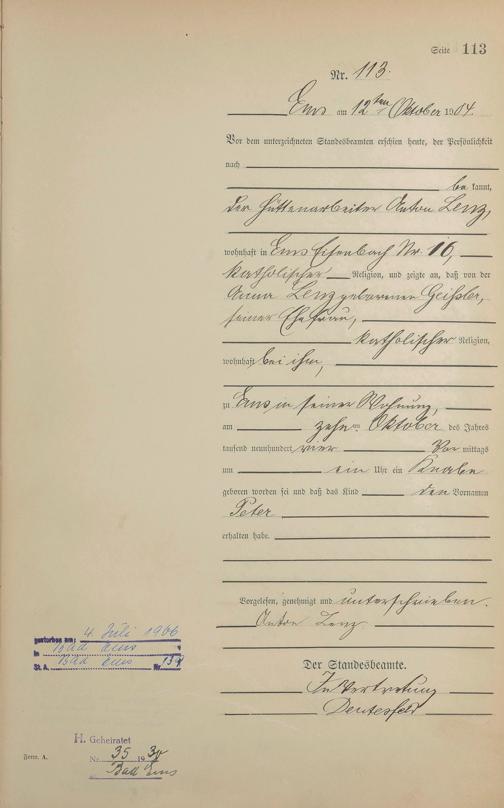 Seite 113
Nr. 113.
Ems am 12ten Oktober 1904.
Vor dem unterzeichneten Standesbeamten erschien heute, der Persönlichkeit
nach
be kannt,
der Hüttenarbeiter Anton Lenz,
wohnhaft in Ems Eisenbach Nr. 16,
katholischer Religion, und zeigte an, daß von der
Anna Lenz geborenen Geißler,
seiner Ehefrau,
katholischer Religion,
wohnhaft bei ihm,
zu Ems in seiner Wohnung,
am zehnten Oktober des Jahres
tausend neunhundert vier Vor mittags
um ein Uhr ein Knabe
geboren worden sei und daß das Kind den Vornamen
Peter
erhalten habe.
Vorgelesen, genehmigt und unterschrieben.
Anton Lenz
Der Standesbeamte.
In Vertretung
gestorben am: 4. Juli 1966
in Bad Ems
St. A. Bad Ems Nr.
H. Geheiratet
Nr. 35 19
Bad Ems
Form. A.